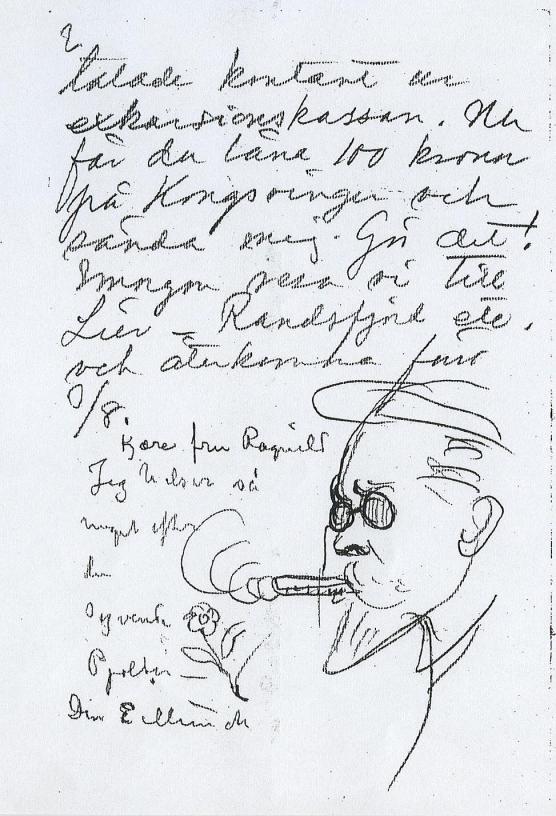 2
talade kontant ur
exkursionskassan. Nu
får du låna 100 kronor
på Kongsvinger och
sända mig. Gör det!
Imorgon resa vi till
Lier – Randsfjord etc.
och återkomma först
9/8.
Kære fru Ragnild
Jeg
så
meget efter
den
Din E Munch